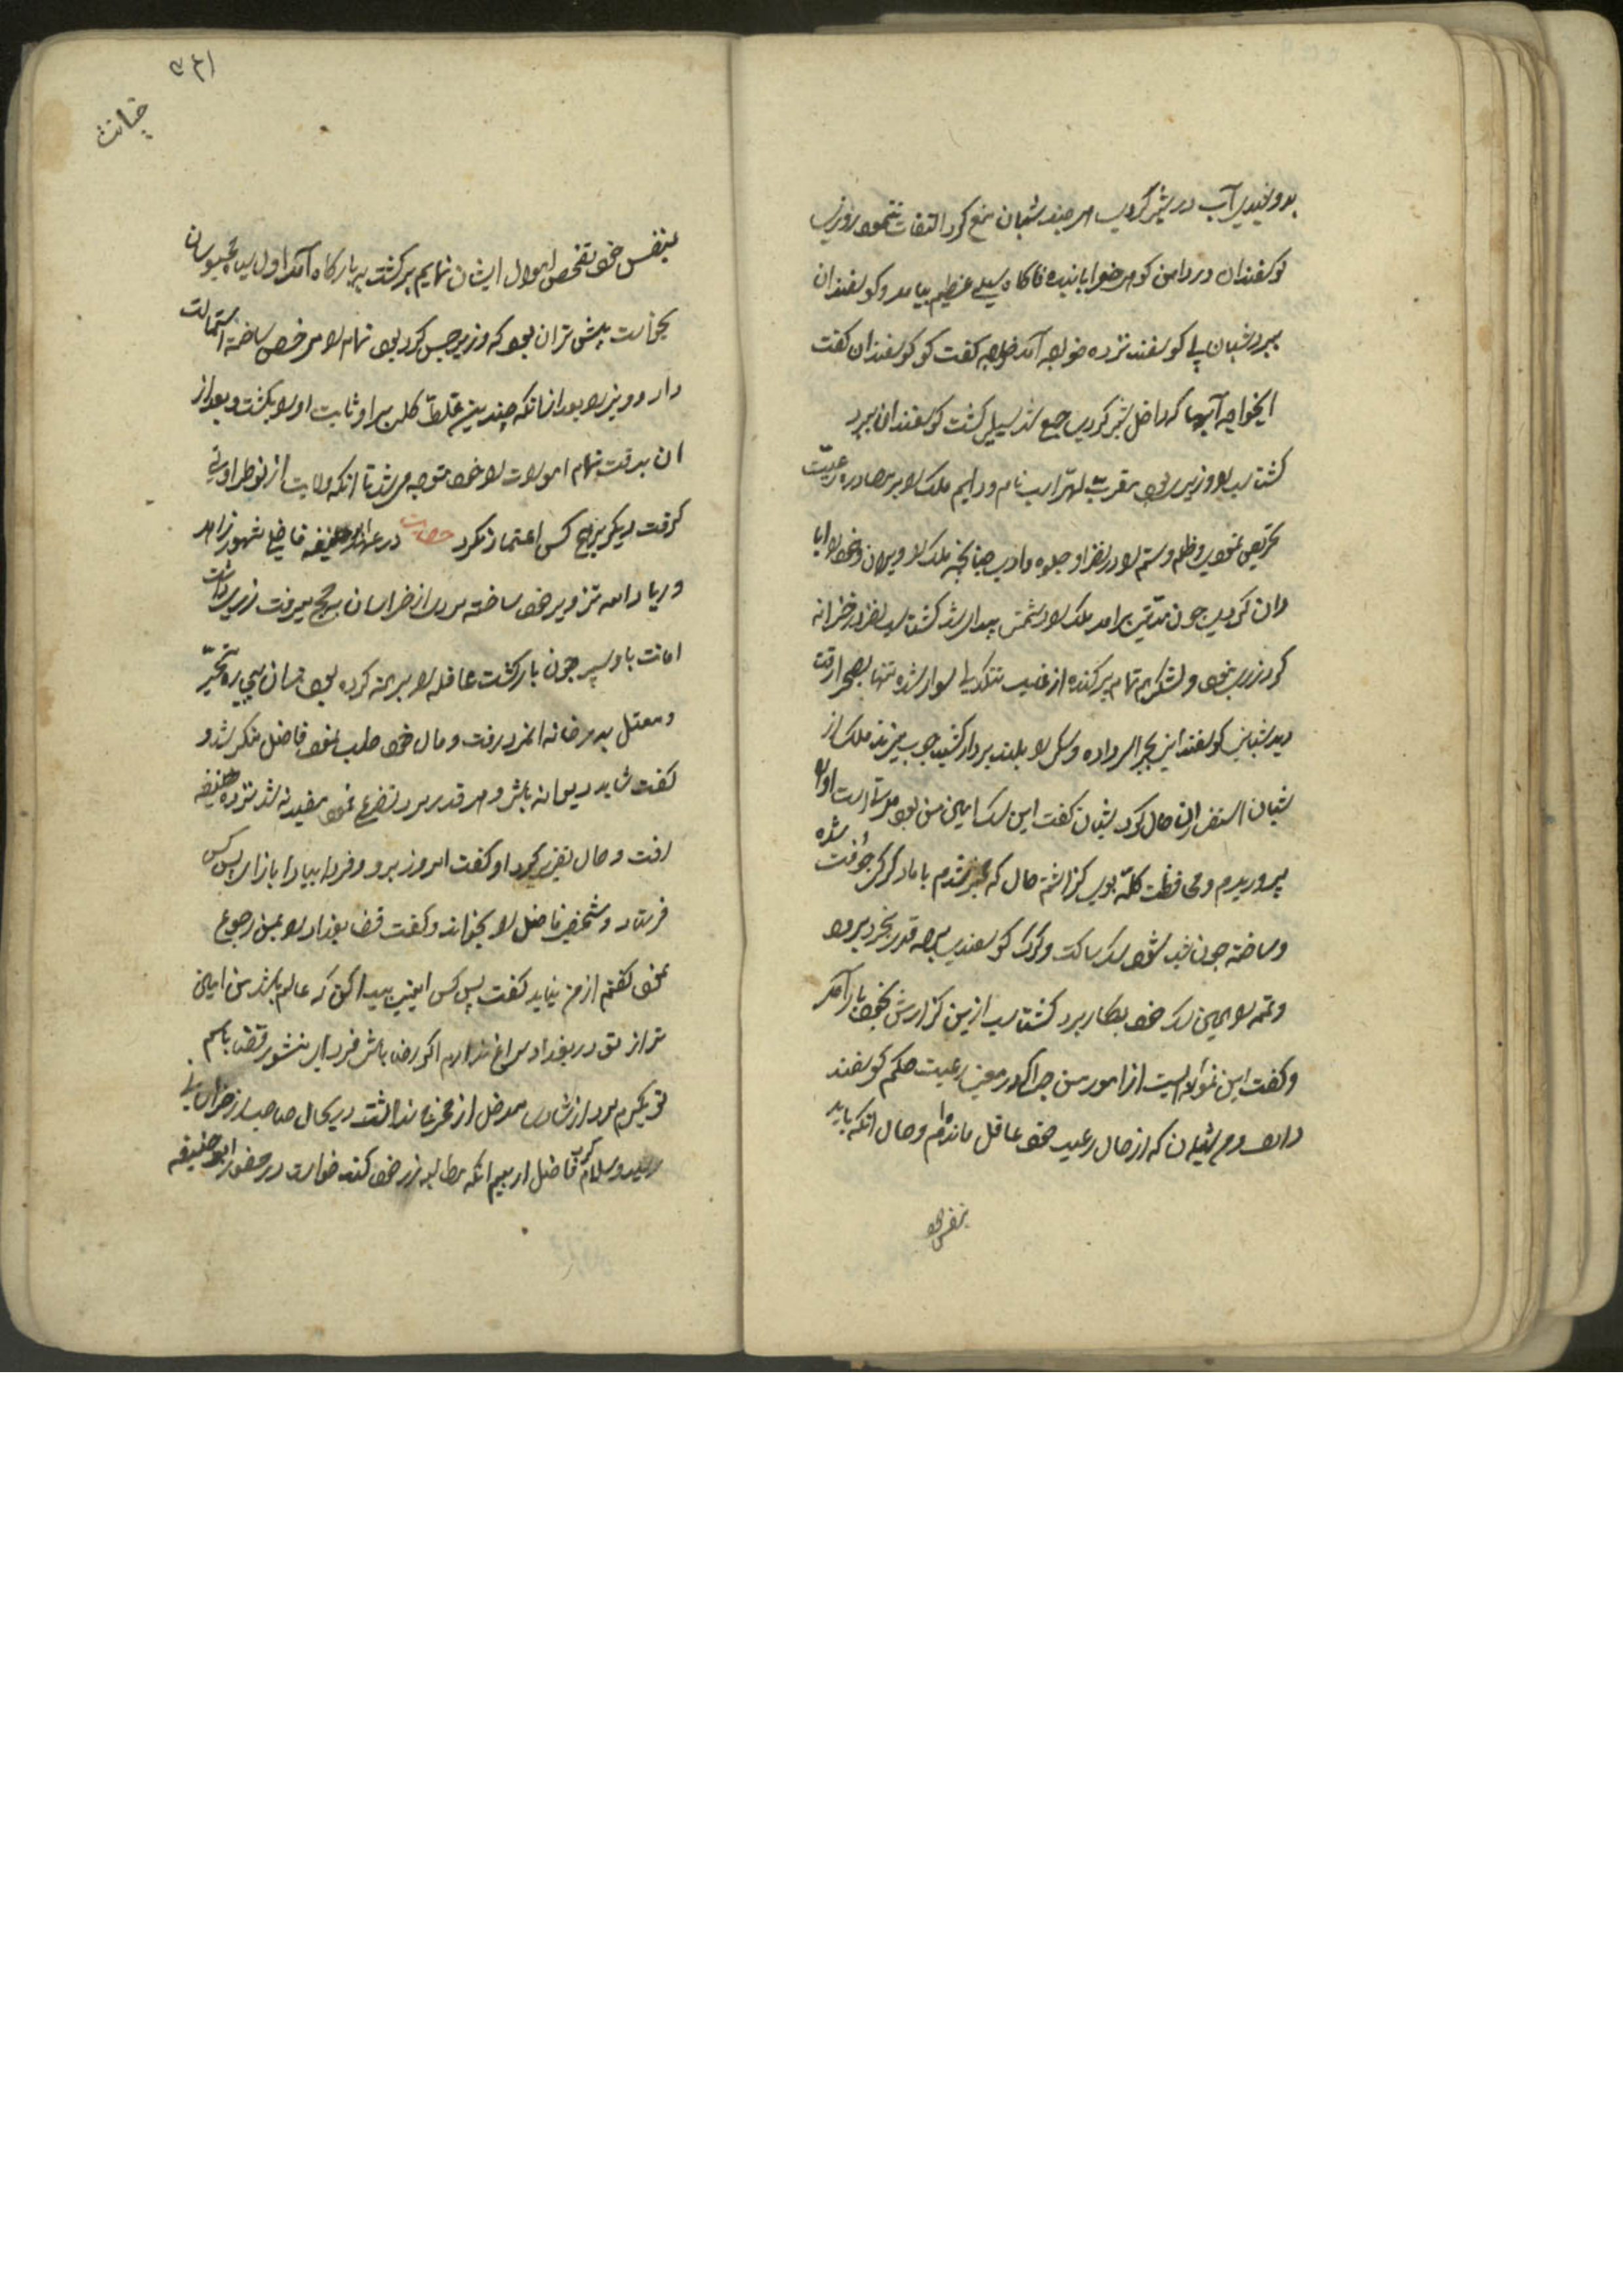 بدوشیدی آب در شیر کردی هر چند شبان منع کرد التفات ننمود روزی
کوسفندان در دامن کوهی خوابانیده ناکاه سیلی عظیم بیامد و کوسفندان
ببرد شبان بی کوسفند نزد خواجه آمد خواجه کفت کو کوسفندان کفت
ایخواجه آبها که داخل شیر کردی جمع شد سیلی کشت کوسفندان ببرد
کشتاسب را وزیری بود مقرب لهراسب نام و دایم ملک را بر مصادره رعیت
تحریص نمودی و ظلم و ستم را در نظر او جلوه دادی چنانچه ملک را ویران و خزانه
دان کردی چون مدتی برامد ملک را دشمنی پیدا شد کشتاسب نظر در خزانه
کرد زر ندید و لشکر تمام پراکنده از غایت تنکدلی سوار شده تنها بصحرا رفت
دید شبانی کوسفندانی بچرا سر داده و سکی را بلند بردار کشیده چوب میزند ملک از
شبان استفسار حال کرد شبان کفت این سک امین من بود مدتیست او را
پروریدم و محافظت کله بوی کذاشتم حال که خبر شدم با ماده کرکی جفت شده
و ساخته چون شب شود سک ساکت و کرک کوسفندی ببرد قدری بخورد
و تتمه را همین سک خود بکار برد کشتاسب ازین کزارش بخود باز آمد
و کفت این نموداریست از امور من چرا که در معنی رعیت حکم کوسفند
دارد و من شبان که از حال رعیت خود غافل مانده‌ام و حال انکه باید
بنفس خود
بنفس خود تفحص احوال ایشان نمایم برکشت ببارکاه آمد اول سیاهه محبوسان
بخواست پیش تر ان بود که وزیر حبس کرده بود تمام را مرخص ساخته استمالت
داد و وزیر را بعد از انکه چندین غلط کلی بر او ثابت او را بکشت و بعد از
ان بدقت تمام امورات را خود متوجه میشد تا انکه ولایت از نو طراوتی
کرفت دیکر بر هیچ کس اعتماد نکرد حکایت در عهد ابوحنیفه قاضی مشهور زاهد
و ریا دام تزویر خود ساخته مردی از خراسان بحج میرفت زری داشت
امانت باو سپرد چون بازکشت قافله را برهنه کرده بودند ان بیچاره متحیر
و معتل بدر خانه انمرد رفت و مال خود طلب نمود فاضل منکر شد و
کفت شاید دیوانه باشی و هر قدر مرد تضرع نمود مفید نه شد نزد ابوحنیفه
رفت و حال تقریر کرد او کفت امروز برو و فردا بیا در بازار پس کس
فرستاد و شخص فاضل را بخواند و کفت قضا بغداد را بمن رجوع
نمود کفتم از من نیاید کفت پس کس امینی پیدا کن که عالم باشد من امین
تر از تو در بغداد سراغ ندارم اکر رضا باشی فردا منشور قضا باسم
تو بکیرم مرد از شادی سر دخل از مخرج ندانست در یحال صاحب زر خراسانی
رسید و سلام کرد فاضل از بیم انکه مطالبه زر خود کند خواست در حضور ابوحنیفه
خیانت